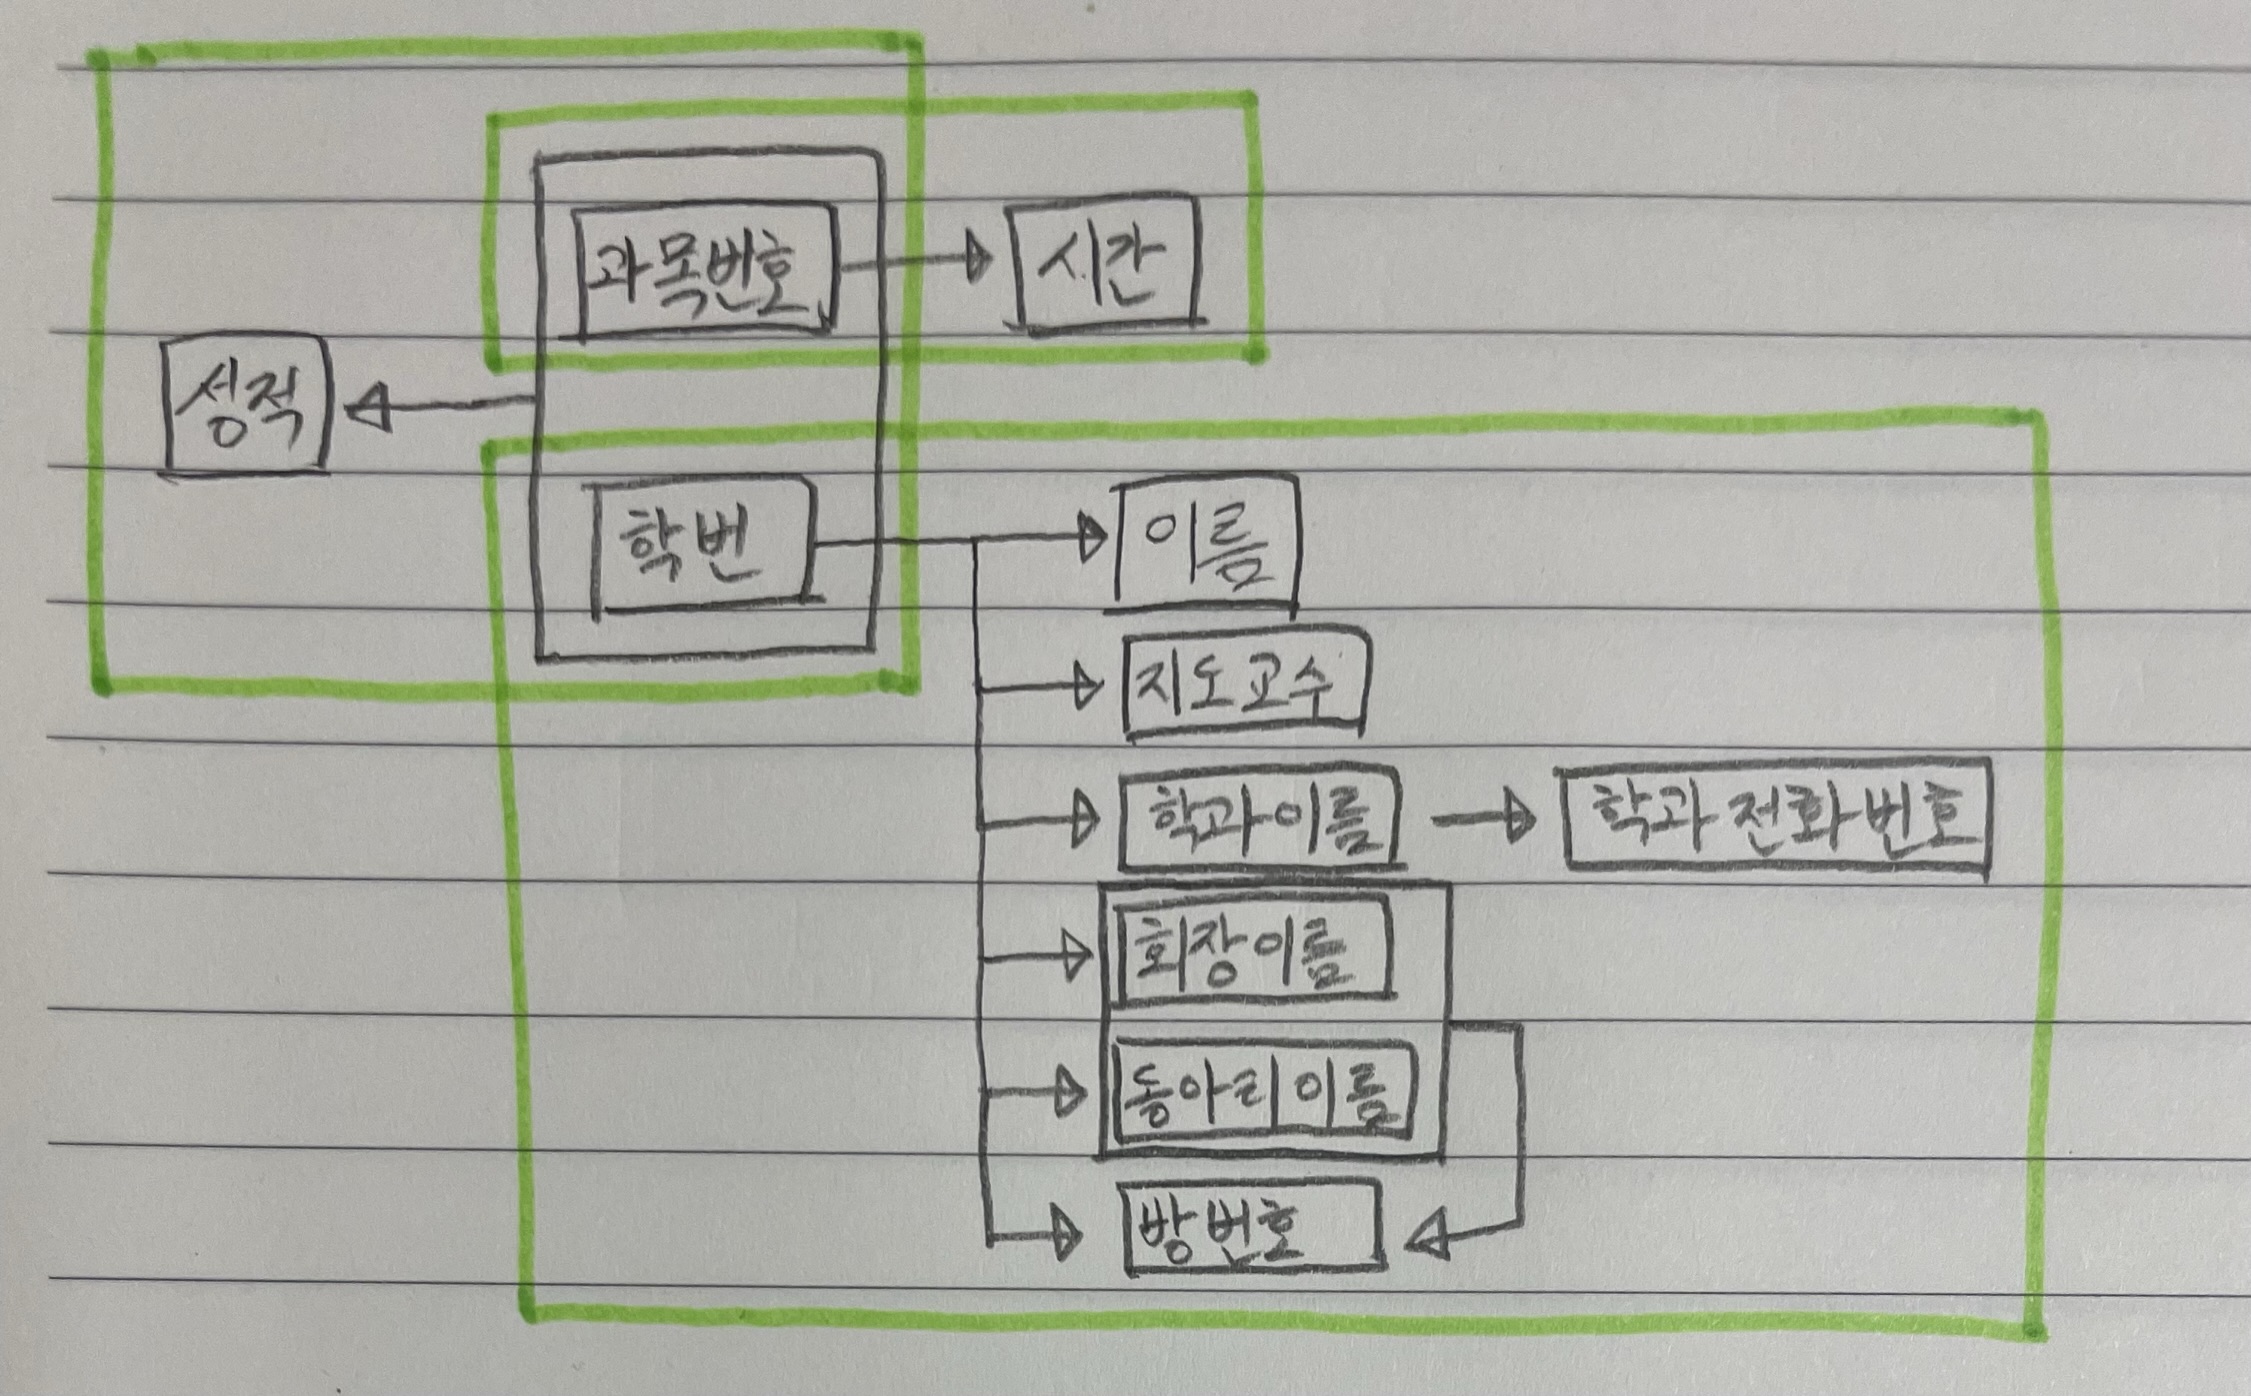 과목번호
시간
성적
학번
이름
지도교수
학과이름
학과 전화 번호
회장이름
동아리 이름
방번호